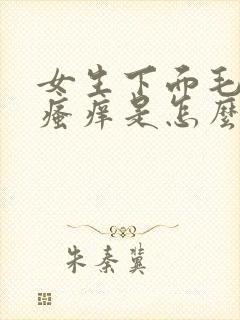 女生下面毛
瘙痒是怎麼
朱秦冀